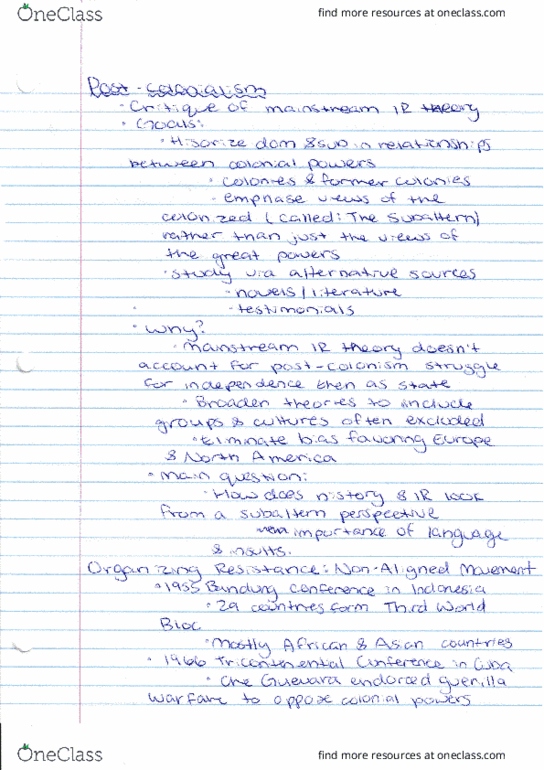 OneClass
find more resources at oneclass.com
Post-colonialism
- Critique of mainstream IR theory
• Goals:
• Hisorize dom & sub in relationships
between colonial powers
• colonies & former colonies
- emphase views of the
colonized (called: The Subaltern)
rather than just the views of
the great powers
• study via alternative sources
• novels/literature
- testimonials
• Why?
• mainstream IR theory doesn't
account for post-colonism struggle
for independence then as state
• Broaden theories to include
groups & cultures often excluded
• Eliminate bias favoring Europe
& North America
• main question:
• How does history & IR look
from a subaltern perspective
importance of language
& insults.
Organizing Resistance: Non-Aligned Movement
• 1955 Bandung conference in Indonesia
• 29 countries form Third World
Bloc
• mostly African & Asian countries
• 1966 Tricontenental Conference in Cuba
• Che Guevara endorced guerilla
warfare to oppose colonial powers
OneClass
find more resources at oneclass.com